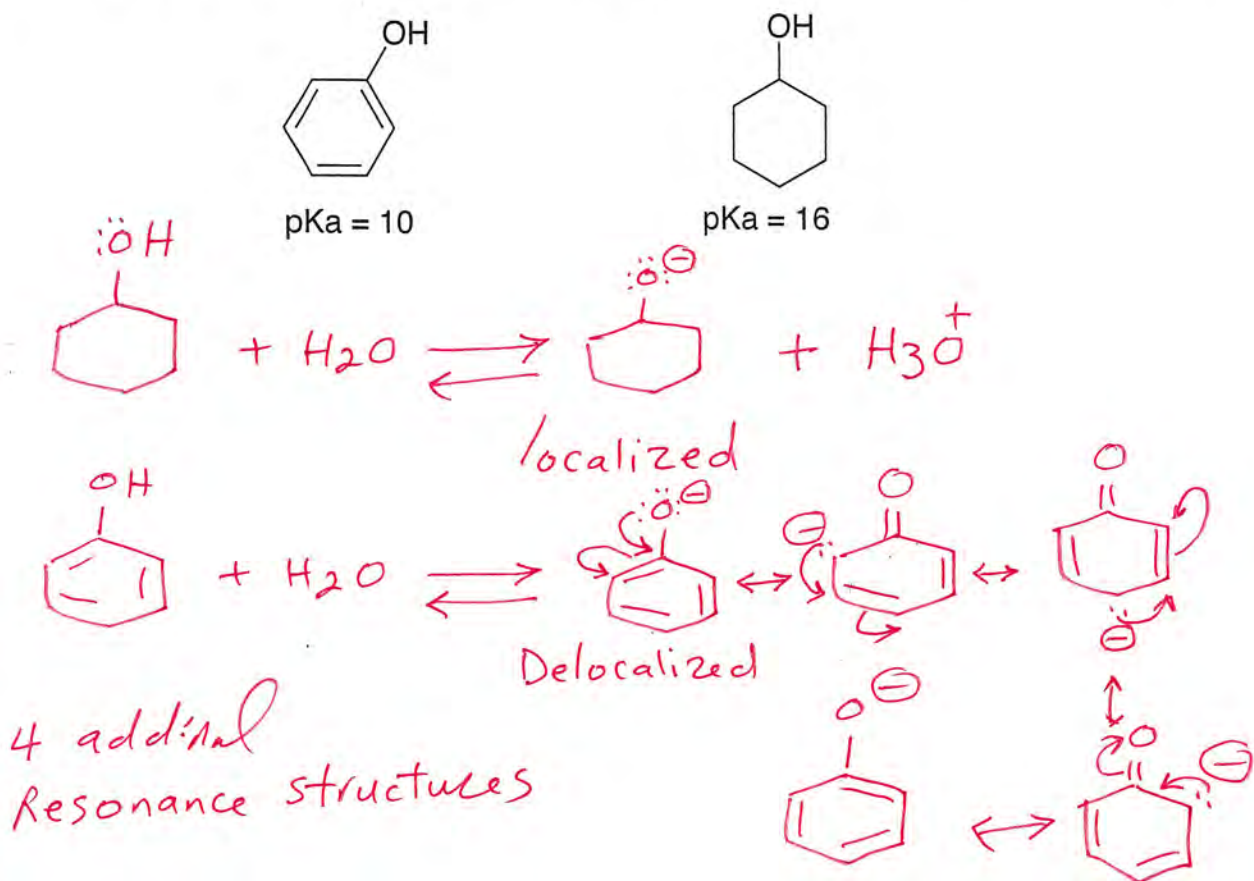 OH
OH
pKa = 10
pKa = 16
:ÖH
+ H2O
:Ö:⊖
+ H3O+
localized
OH
+ H2O
:Ö:⊖
Delocalized
⊖
O
O
⊖
O⊖
O
⊖
4 addinal
Resonance structures